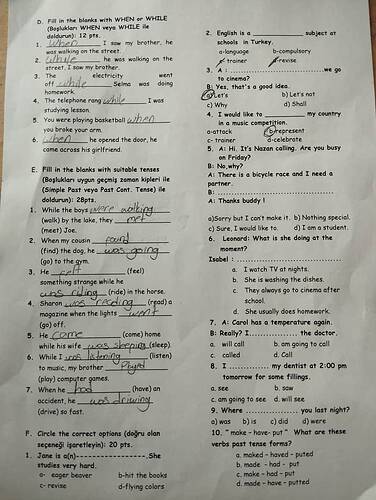 D. Fill in the blanks with WHEN or WHILE
(Boşlukları WHEN veya WHILE ile
doldurun): 12 pts.
1. when I saw my brother, he
was walking on the street.
2. while he was walking on the
street, I saw my brother.
3. The electricity went
off while Selma was doing
homework.
4. The telephone rang while I was
studying lesson.
5. You were playing basketball when
you broke your arm.
6. when he opened the door, he
came across his girlfriend.
E. Fill in the blanks with suitable tenses
(Boşlukları uygun geçmiş zaman kipleri ile
(Simple Past veya Past Cont. Tense) ile
doldurun): 28pts.
1. While the boys were walking
(walk) by the lake, they met
(meet) Joe.
2. When my cousin found
(find) the dog, he was going
(go) to the gym.
3. He felt (feel)
something strange while he
was riding (ride) in the horse.
4. Sharon was reading (read) a
magazine when the lights went
(go) off.
5. He came (come) home
while his wife was sleeping (sleep).
6. While I was listening (listen)
to music, my brother played
(play) computer games.
7. When he had (have) an
accident, he was driving
(drive) so fast.
F. Circle the correct options (doğru olan
seçeneği işaretleyin): 20 pts.
1. Jane is a(n)----------------.She
studies very hard.
a- eager beaver b-hit the books
c- revise d-flying colors
2. English is a ______ subject at
schools in Turkey.
a-language b-compulsory
c- trainer d-revise
3. A : ______we go
to cinema?
B: Yes, that's a good idea.
a) Let's b) Let's not
c) Why d) Shall
4. I would like to ______ my country
in a music competition.
a-attack b-represent
c- trainer d-celebrate
5. A: Hi. It's Nazan calling. Are you busy
on Friday?
B: No,why?
A: There is a bicycle race and I need a
partner.
B: ______
A: Thanks buddy !
a)Sorry but I can't make it. b) Nothing special.
c) Sure, I would like to. d) I am a student.
6. Leonard: What is she doing at the
moment?
Isabel : ______
a. I watch TV at nights.
b. She is washing the dishes.
c. They always go to cinema after
school.
d. She usually does homework.
7. A: Carol has a temperature again.
B: Really? I______ the doctor.
a. will call b. am going to call
c. called d. Call
8. I ______ my dentist at 2:00 pm
tomorrow for some fillings.
a. see b. saw
c. am going to see d. will see
9. Where ______ you last night?
a) was b) is c) did d) were
10. " make – have- put " What are these
verbs past tense forms?
a. maked – haved – puted
b. made – had - put
c. make – had –put
d. made – have – putted